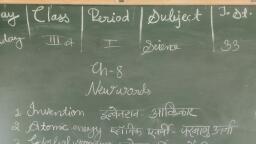 ay Class Period Subject T. St.
day III A I Science 33
Ch-8
New words
1 Invention इन्वेनशन आविष्कार
2 Atomic energy एटोमिक एनर्जी परमाणु ऊर्जा